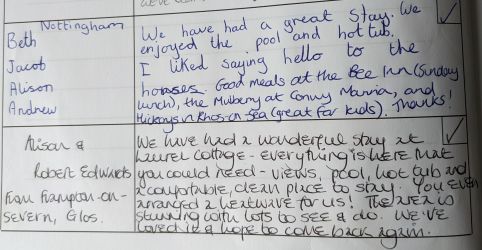 Nottingham
Beth
Jacob
Alison
Andrew
We have had a great stay. We
enjoyed the pool and hot tub.
I liked saying hello to the
horses. Good meals at the Bee Inn (Sunday
lunch), the Mulberry at Conwy Marina, and
Hickorys in Rhos on Sea (great for kids). Thanks!
Alison &
Robert Edwards
from Frampton-on-
Severn, Glos.
We have had a wonderful stay at
Laurel Cottage - everything is here that
you could need - views, pool, hot tub and
a comfortable, clean place to stay. You even
arranged a heatwave for us! The area is
stunning with lots to see & do. We've
loved it & hope to come back again.